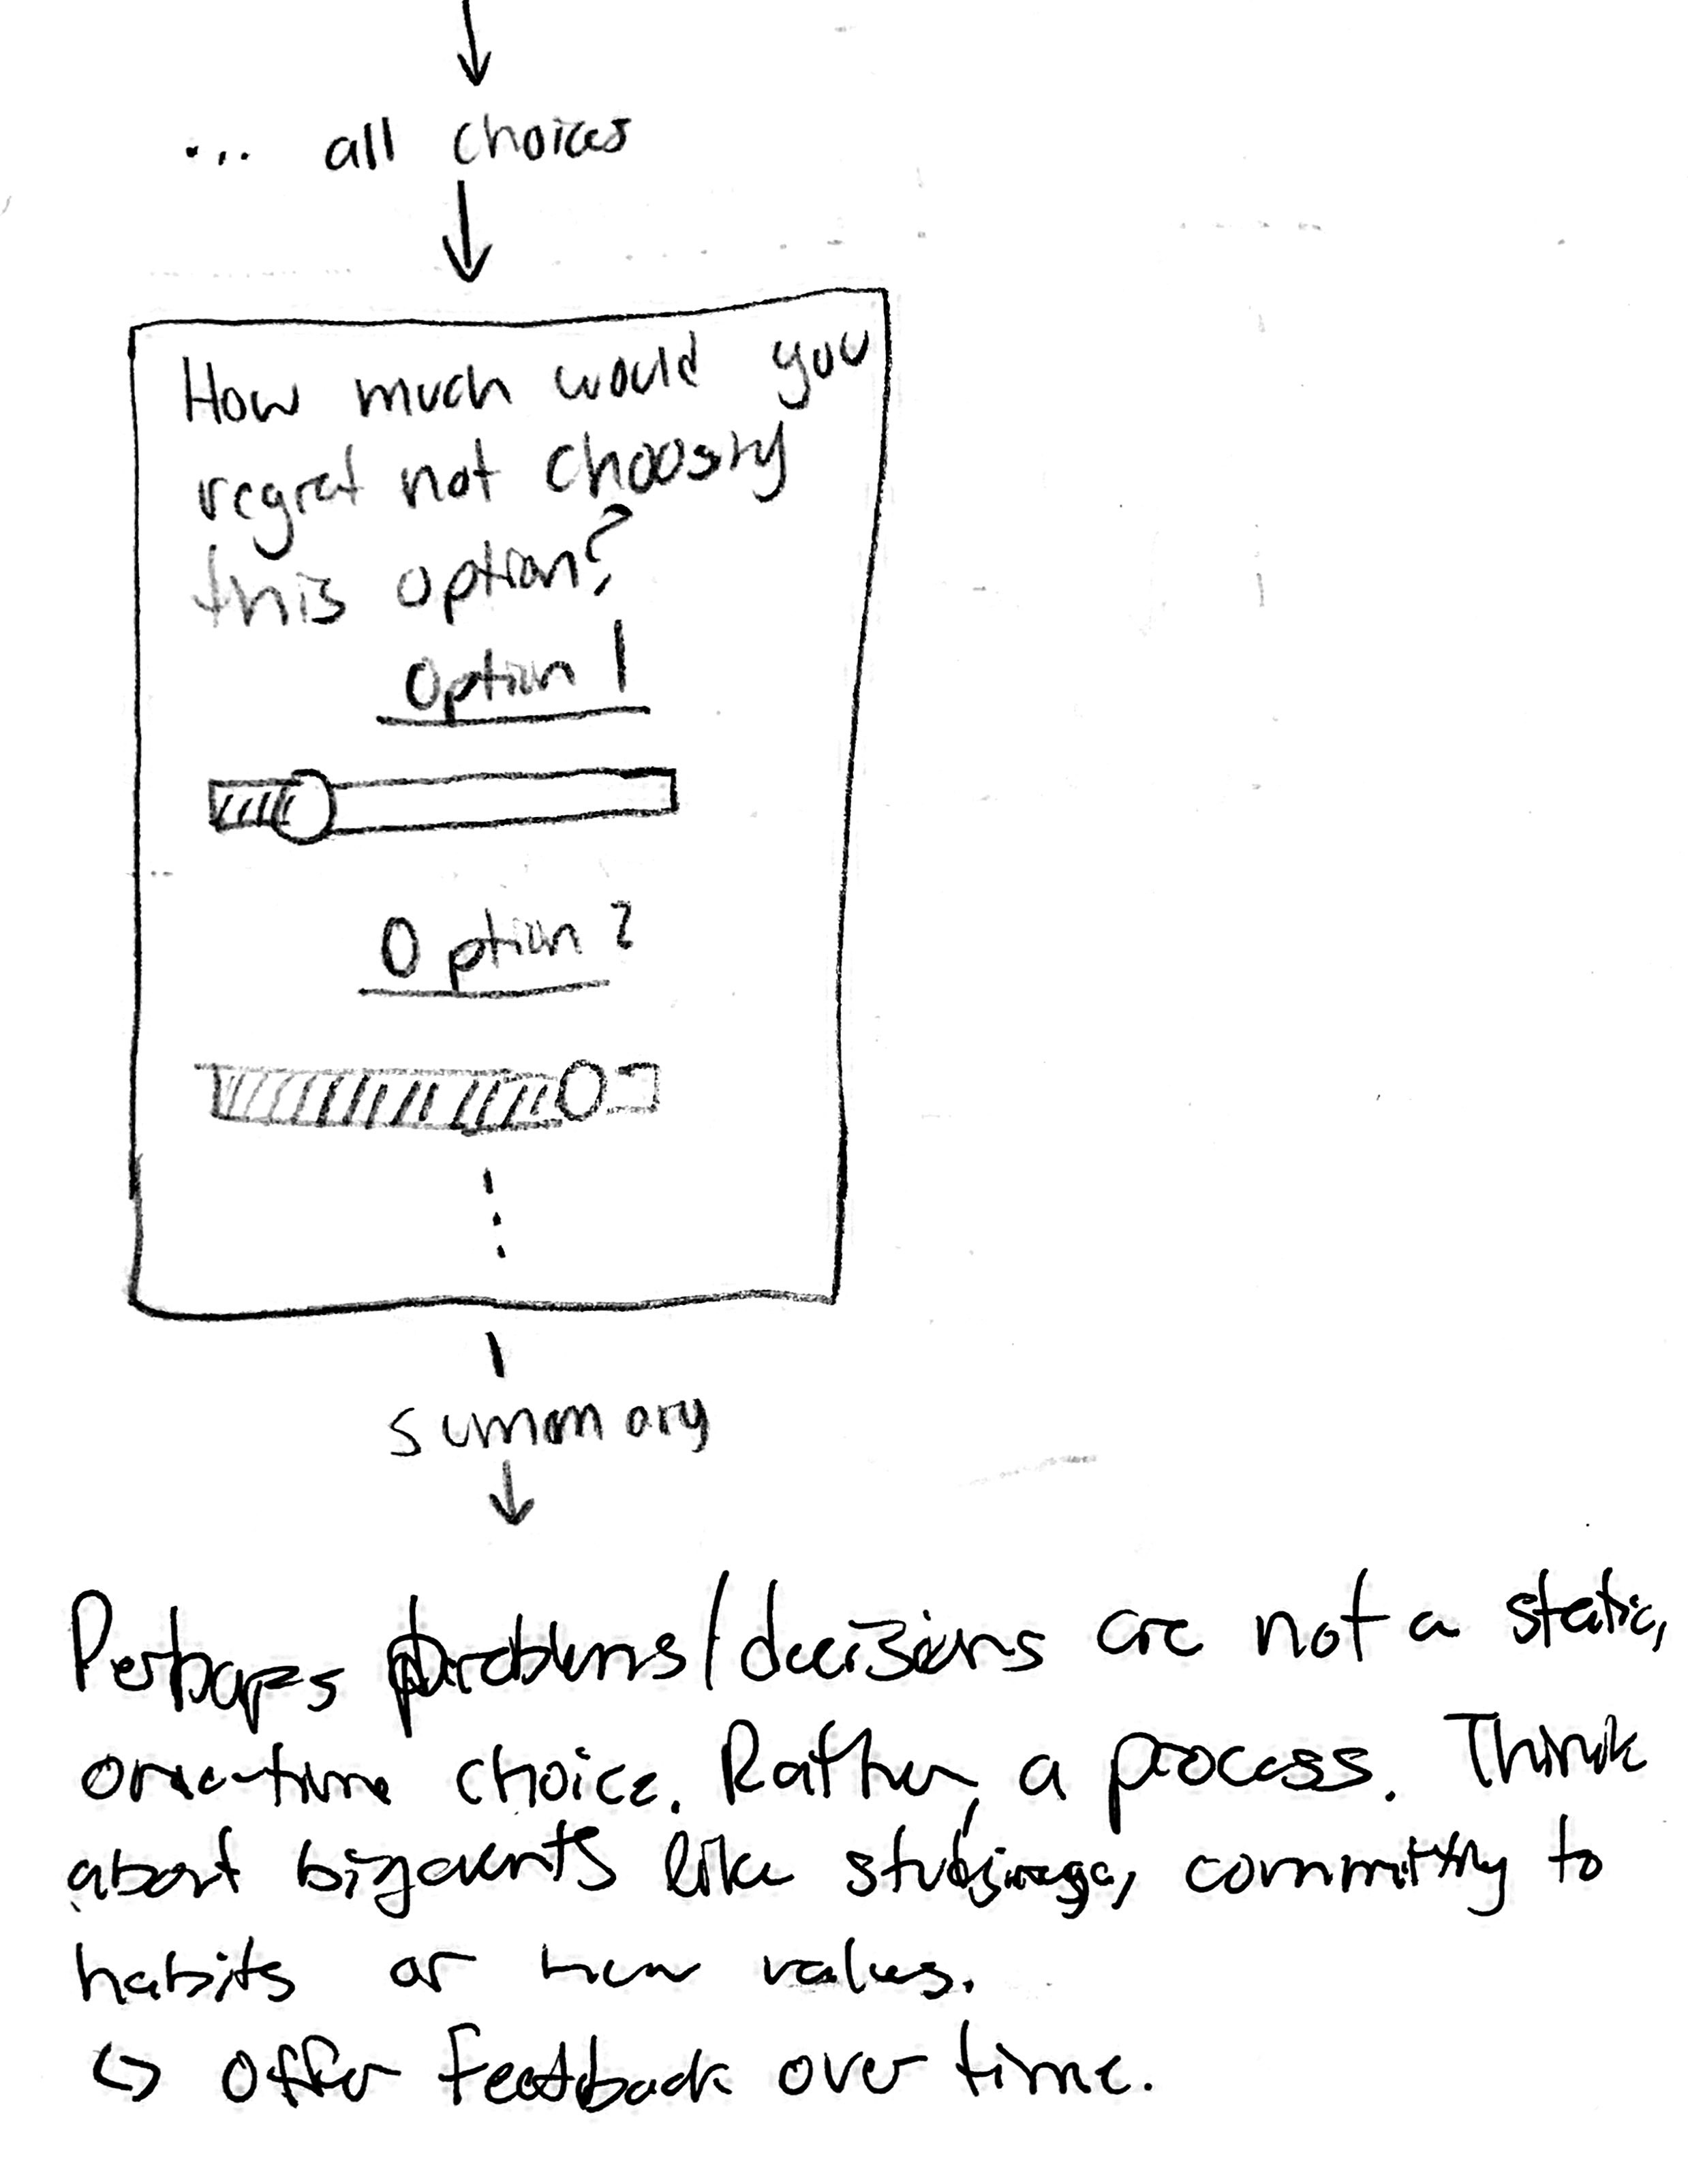 ... all choices
How much would you
regret not choosing
this option?
Option 1
Option 2
summary
Perhaps problems/decisions are not a static,
one-time choice. Rather, a process. Think
about big events like committing to
habits or new values.
↳ Offer feedback over time.